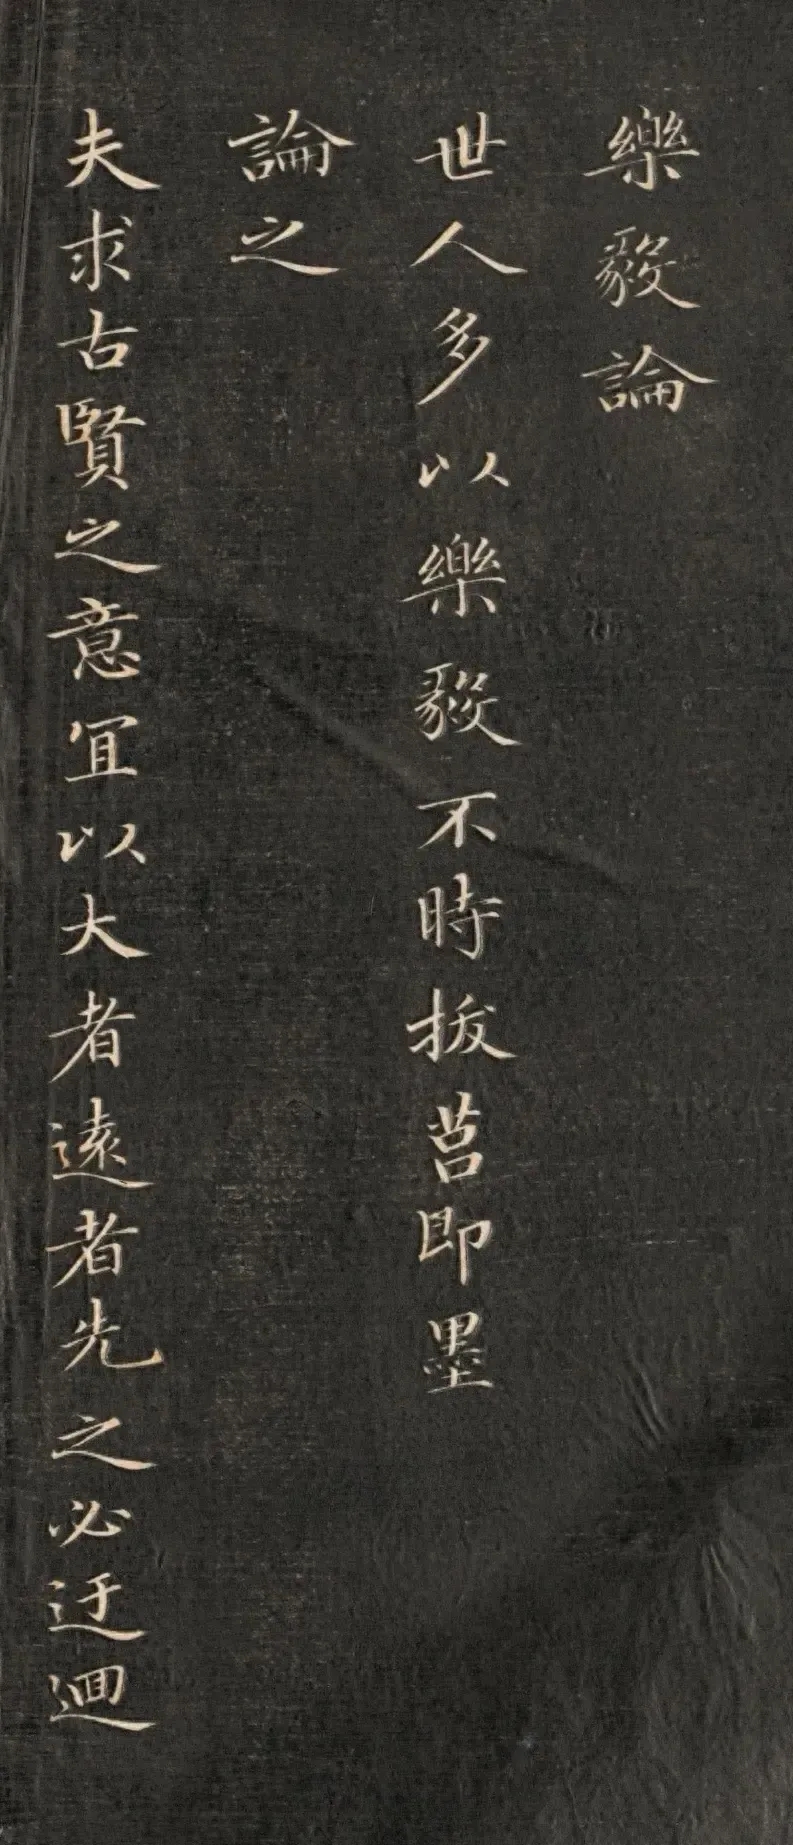 樂毅論
世人多以樂毅不時拔莒即墨
論之
夫求古賢之意宜以大者遠者先之必迂迴